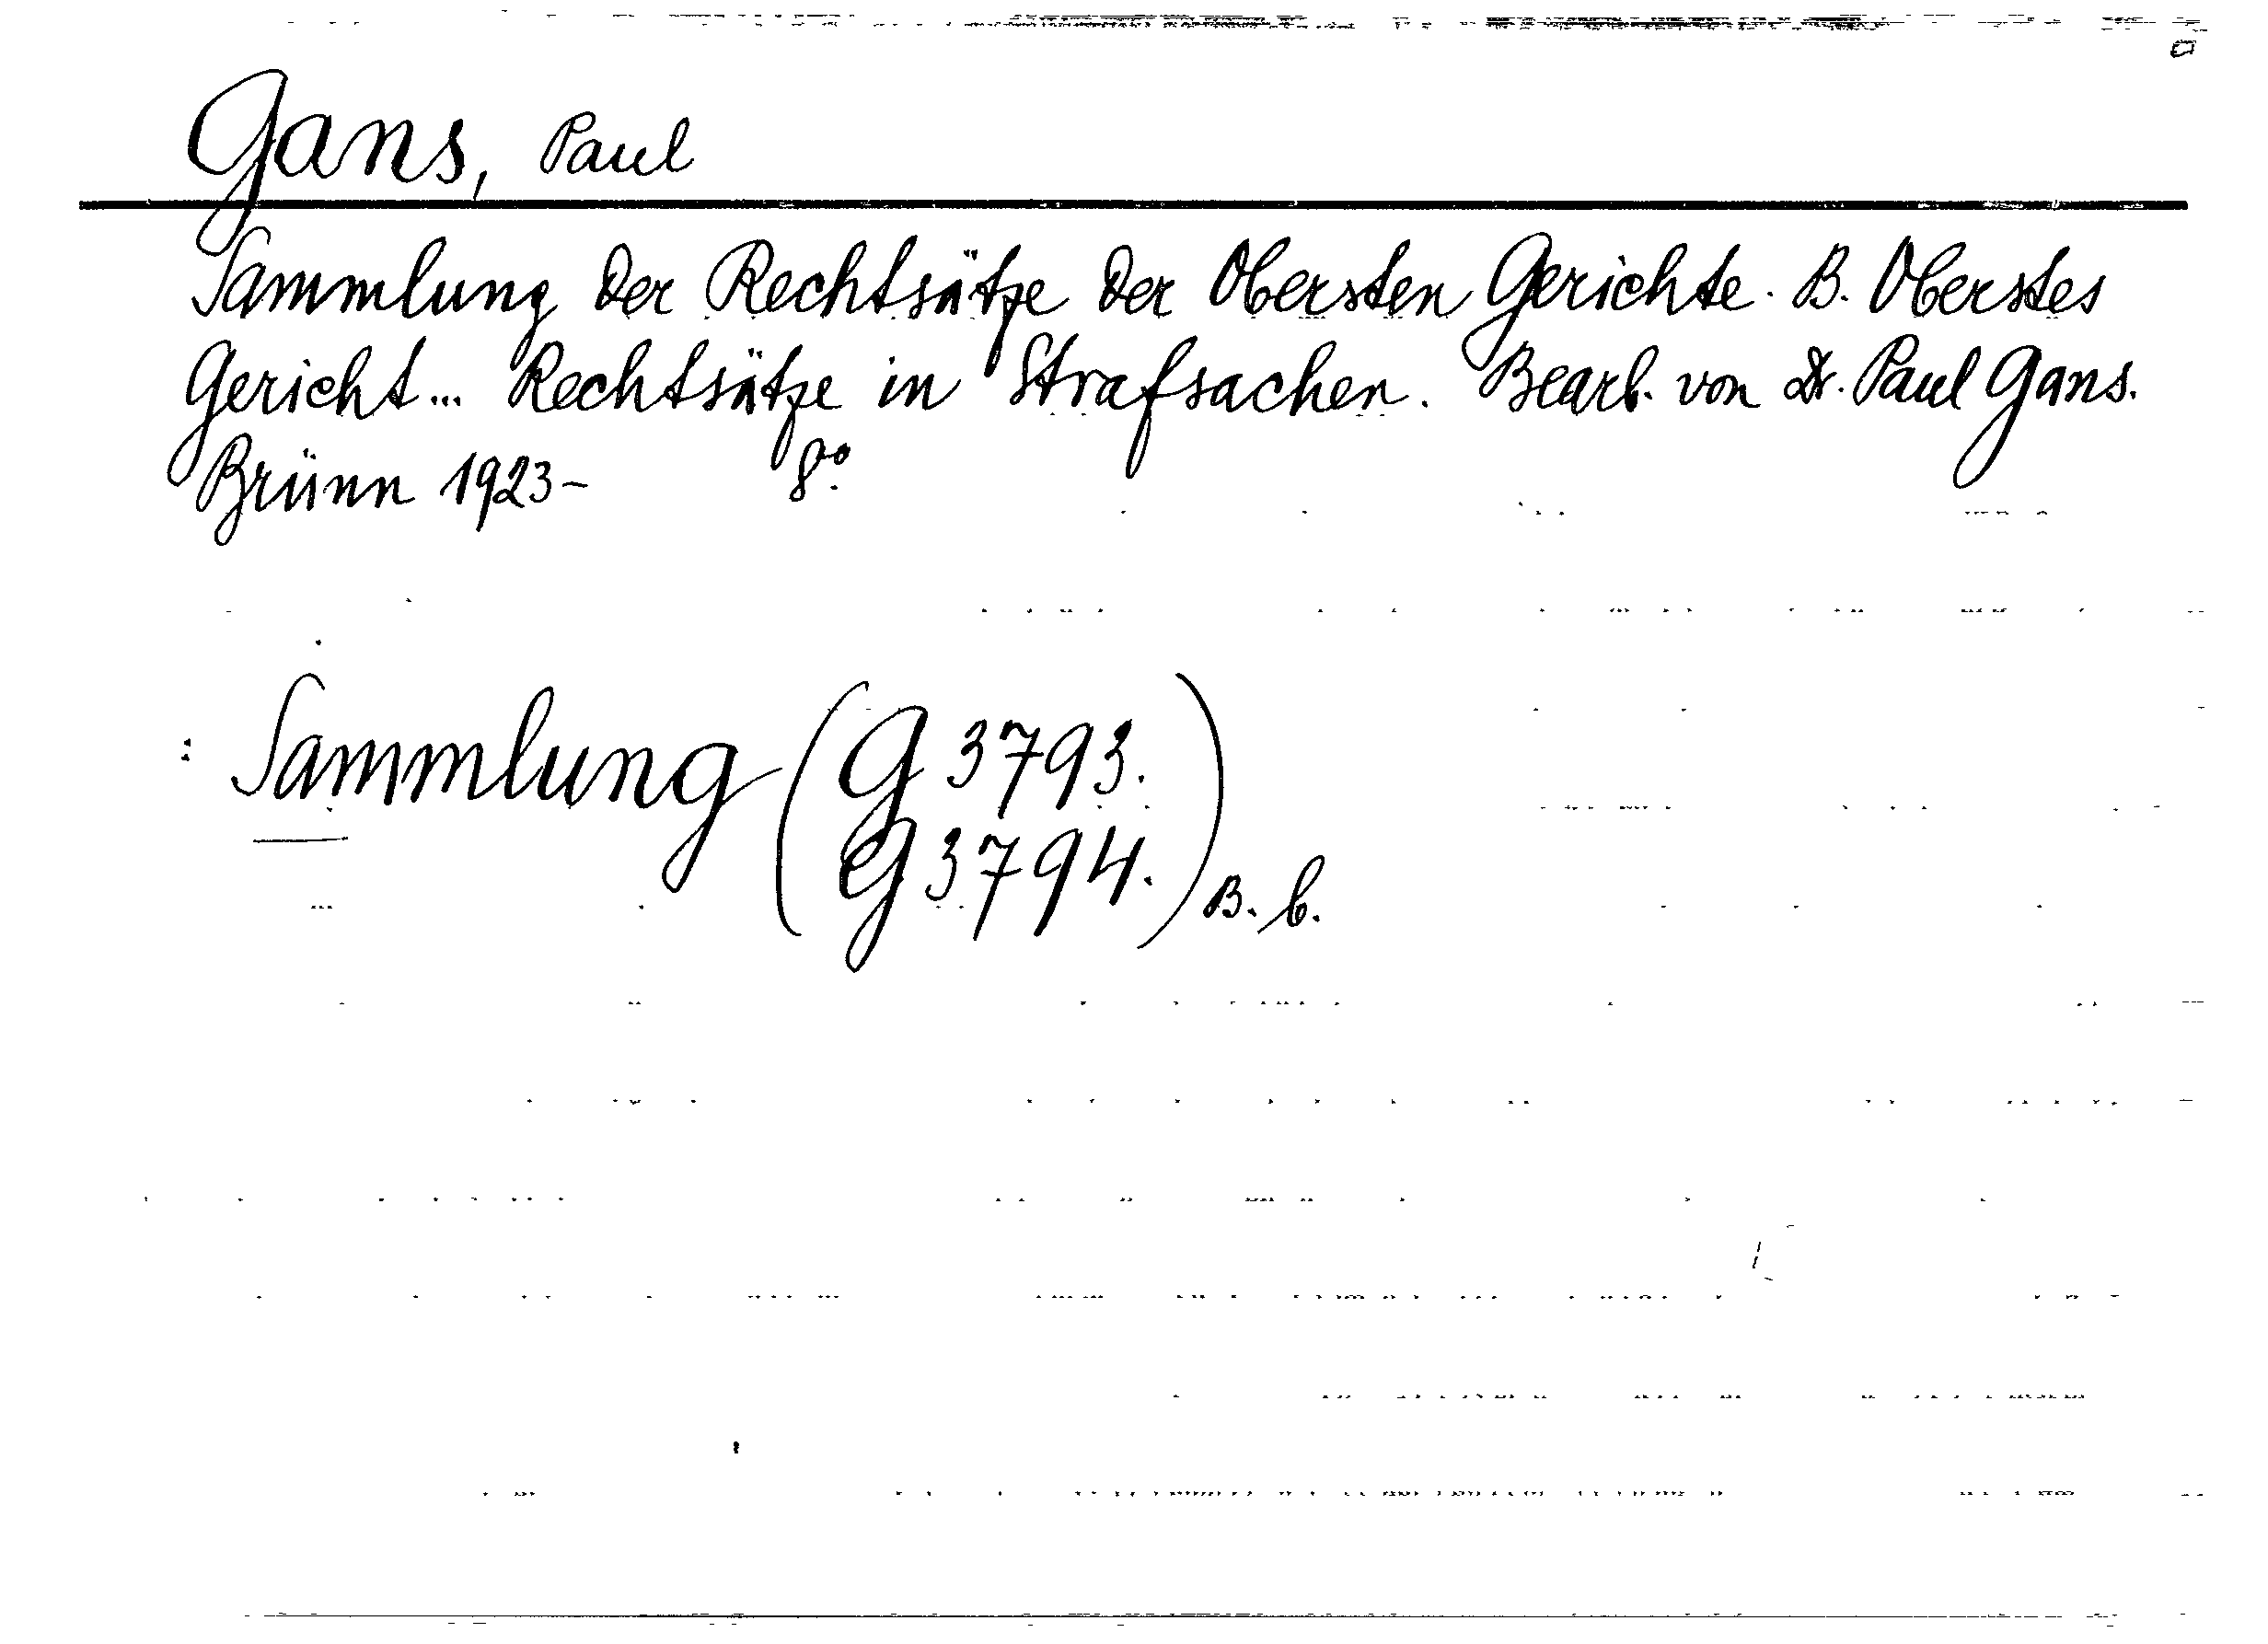 Gans, Paul
Sammlung der Rechtsätze der Obersten Gerichte. B. Oberstes
Gericht... Rechtsätze in Strafsachen. Bearb. von Dr. Paul Gans.
Brünn 1923- 8°.
: Sammlung (G 3793.
G 3794.) B. b.